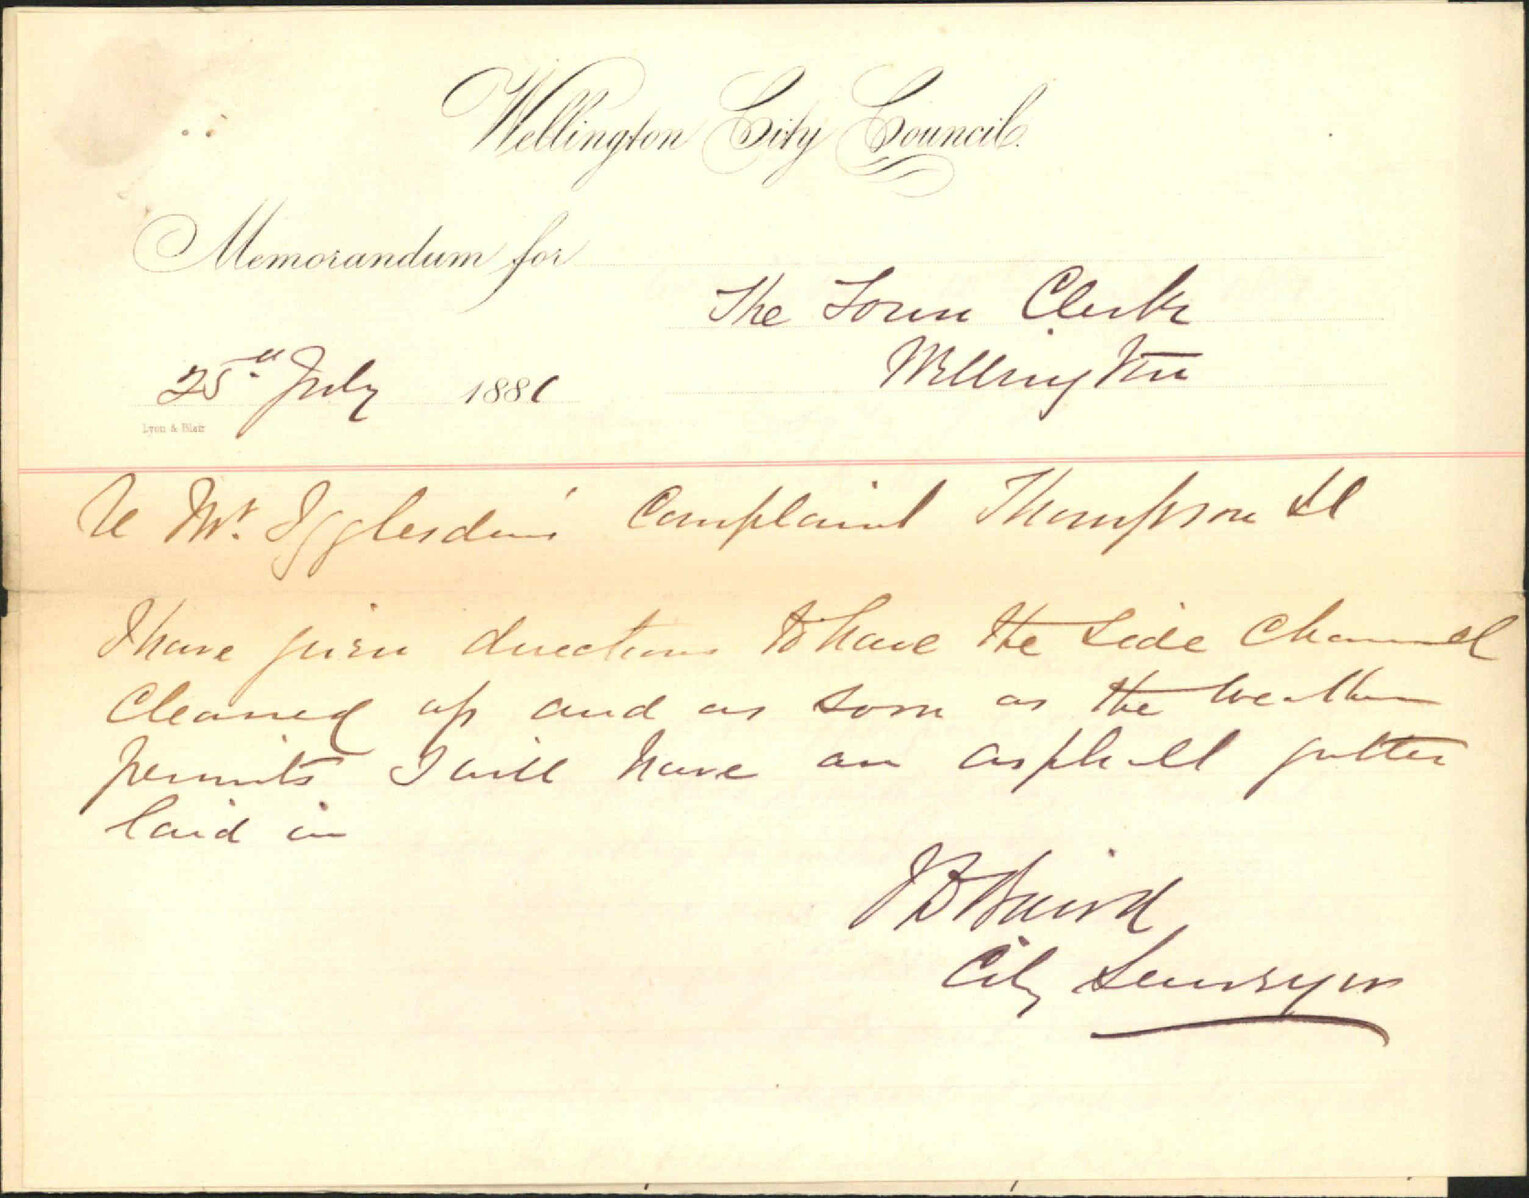 Wellington City Council.
Memorandum for
The Town Clerk
Wellington
25th July 1881
Lyon & Blair
Re Mr. Igglesden's Complaint Thompson St
I have given directions to have the Side Channel
Cleaned up and as soon as the weather
permits I will have an asphalt gutter
laid in
J D Baird
City Surveyor